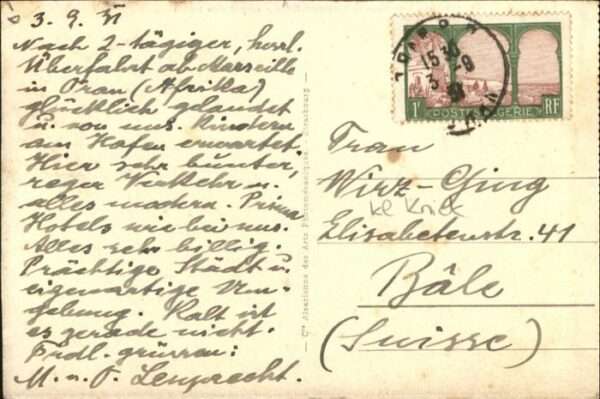 3. 9. 31
Nach 2-tägiger, herrl.
Überfahrt ab Marseille
in Oran (Afrika)
glücklich gelandet
u. von uns. Kindern
am Hafen erwartet.
Hier sehr bunter,
reger Verkehr u.
alles modern. Prima
Hotels wie bei uns.
Alles sehr billig.
Prächtige Stadt u.
eigenartige Um-
gebung. Kalt ist
es gerade nicht.
Frdl. grüssen:
M. u. O.
Cie Alsacienne des Arts Photomécaniques, Strasbourg
ORAN
15 30
3 -9
31
ORAN
1F
POSTES ALGERIE
RF
Frau
Wirz-Ging
Elisabetenstr. 41
Bâle
(Suisse)